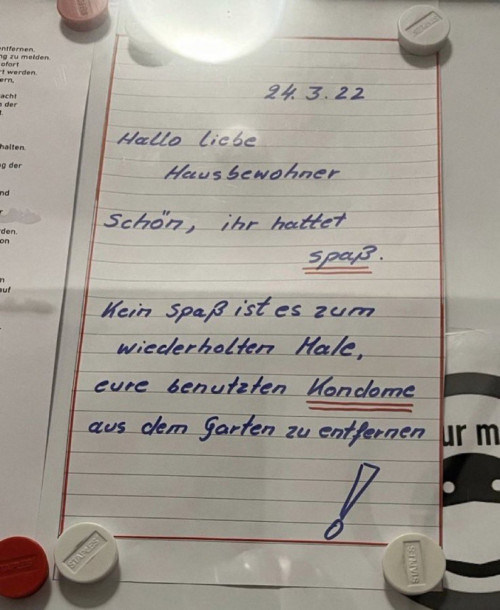 ntfernen.
ng zu melden.
ofort
rt werden.
ern,
acht
n der
halten.
ng der
nd
rden.
on
n
auf
24.3.22
Hallo liebe
Hausbewohner
Schön, ihr hattet
spaß.
Kein Spaß ist es zum
wiederholten Male,
eure benutzten Kondome
aus dem Garten zu entfernen
!
ur m
STAPLES
STAPLES